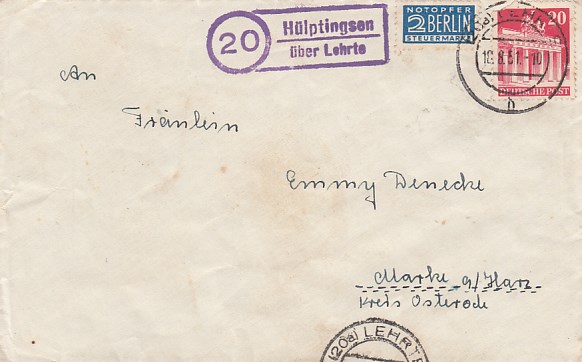 20
Hülptingsen
über Lehrte
NOTOPFER
2 BERLIN
STEUERMARKE
20
DEUTSCHE POST
(20a) LEHRTE
18.8.51.-10
b
An
Fräulein
Emmy Denecke
Marke a/Harz
Kreis Osterode
(20a) LEHRTE